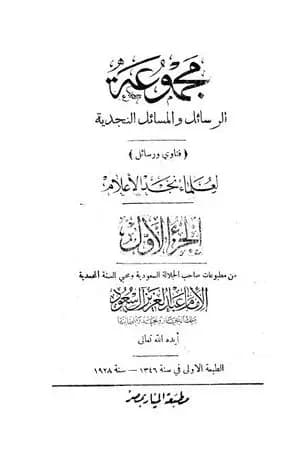 مجموعة
الرسائل والمسائل النجدية
( فتاوي ورسائل )
لعلماء نجد الأعلام
الجزء الأول
من مطبوعات صاحب الجلالة السعودية ومحيي السنة المحمدية
الإمام عبد العزيز آل سعود
أيده الله تعالى
الطبعة الاولى في سنة ١٣٤٦ — سنة ١٩٢٨
مطبعة المنار بمصر